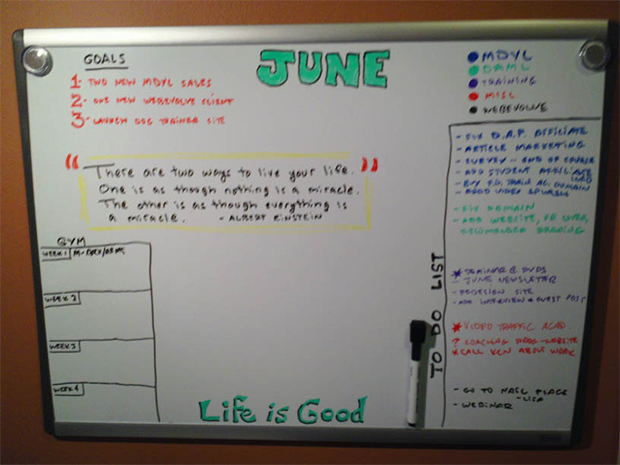 GOALS
1- TWO NEW MDYL SALES
2- ONE NEW WEBEVOLVE CLIENT
3- LAUNCH DOG TRAINER SITE
JUNE
MDYL
DAML
TRAINING
MISC
WEBEVOLVE
"There are two ways to live your life.
One is as though nothing is a miracle.
The other is as though everything is
a miracle. - ALBERT EINSTEIN"
GYM
WEEK 1
WEEK 2
WEEK 3
WEEK 4
TO DO LIST
- FIX D.A.P. AFFILIATE
- ARTICLE MARKETING
- SURVEY - END OF COURSE
- ADD STUDENT AFFILIATE
- FIX DOMAIN
- ADD WEBSITE,
* SEMINAR & DVDS
- JUNE NEWSLETTER
- REDESIGN SITE
- INTERVIEW & GUEST POST
* VIDEO TRAFFIC ACAD.
? COACHING WEBSITE
* CALL KEN ABOUT WORK
- GO TO NAIL PLACE
- LISA
- WEBINAR
Life is Good